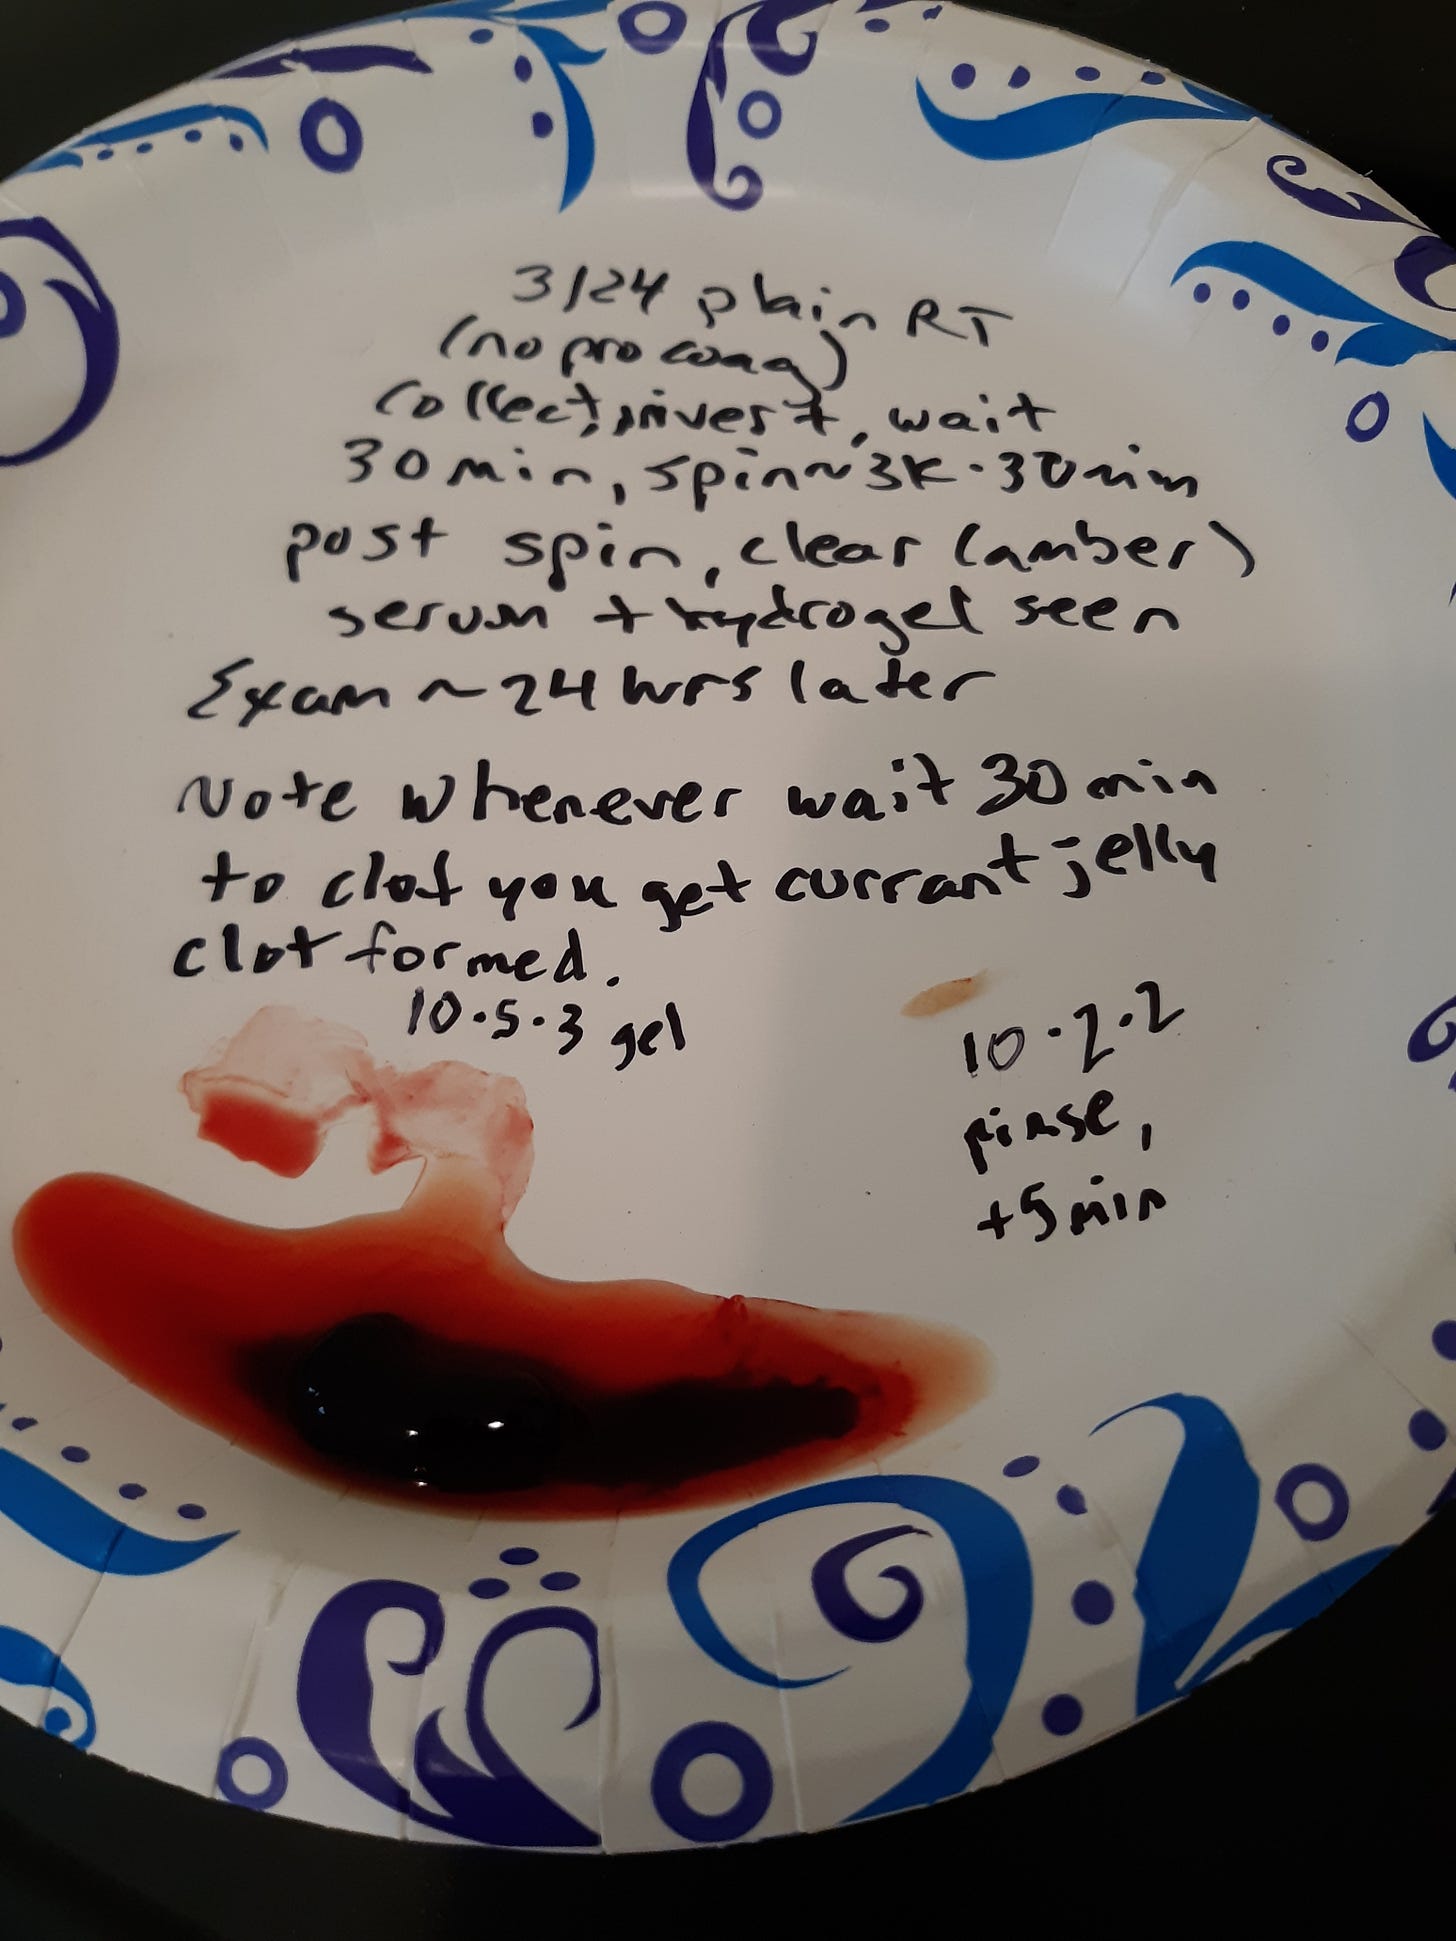 3/24 plain RT
(no pro coag)
Collect, invert, wait
30 min, spin ~ 3K · 30 min
post spin, clear (amber)
serum + hydrogel seen
Exam ~ 24 hrs later
Note whenever wait 30 min
to clot you get currant jelly
clot formed.
10·5·3 gel
10·2·2
rinse,
+5 min